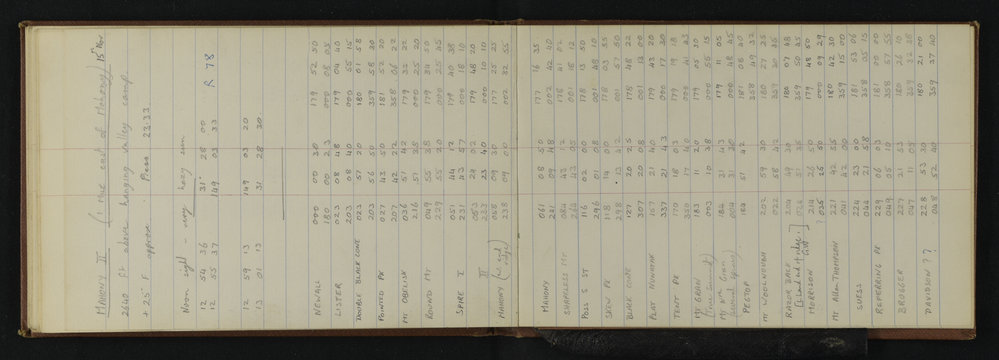 MAHONY III (1 mile east of Mahony) 15th Nov
2640 ft above hanging valley camp
+ 25° F approx. Press 23.33
Noon sight - very hazy sun R 78
12 54 36 31° 28 00
12 55 37 149 03 33
12 59 13 149 03 20
13 01 13 31 28 30
NEWALL 000 00 30 179 52 50
180 00 23 000 08 05
LISTER 023 08 48 179 04 40
203 08 40 000 55 15
DOUBLE BLACK CONE 023 57 20 180 01 58
203 56 50 359 58 20
POINTED PK 027 43 50 181 52 20
207 42 40 358 06 22
Mt OBELISK 036 57 42 179 22
216 57 28 000 25 20
ROUND MT 049 55 38 179 34 50
229 55 20 000 25 45
SPIRE I 051 44 12 179 40 38
231 43 57 000 18 10
II 053 24 02 179 48 20
233 23 40 000 10 10
MAHONY (west end ridge) 058 09 30 177 25 25
238 09 00 002 32 55
MAHONY 061 08 50 177 16 35
241 09 48 002 42 40
SHAPELESS MT 084 43 12 178 41 02
264 43 05 001 18 12
POSS S ST 116 02 00 178 13 50
296 01 08 001 48 10
SKEW PK 118 14 00 178 03 55
298 12 42 001 57 50
BLACK CONE 127 20 50 178 48 22
307 20 08 001 13 00
FLAT NUNATAK 157 21 40 179 43 20
337 21 43 000 17 30
TENT PK 170 18 13 179 19 18
350 17 40 41 43
Mt GRAN (True Summit) 183 11 20 179 05 30
003 10 38 000 55 15
Mt Gran 184 31 43 179 11 05
004 31 30 000 48 45
PEGTOP 184 51 42 181 08 20
358 49 32
Mt WOOLNOUGH 202 59 30 180 27 25
022 58 42 359 30 35
RAZOR BACK 204 49 30 180 07 48
024 359 50 50
MORRISON 214 26 25 179 48 50
035 25 50 000 09 29
Mt Allan THOMPSON 221 42 55 180 42 30
041 42 00 359 15 00
SUESS 224 23 40 181 53 06
044 21 58 358 05 15
REFERRING PK 229 06 03 181 00 00
049 05 10 358 57 55
BROGGER 227 21 53 180 26 10
047 21 05 359 28
DAVIDSON ?? 228 53 30 180 21 00
048 52 40 359 37 40